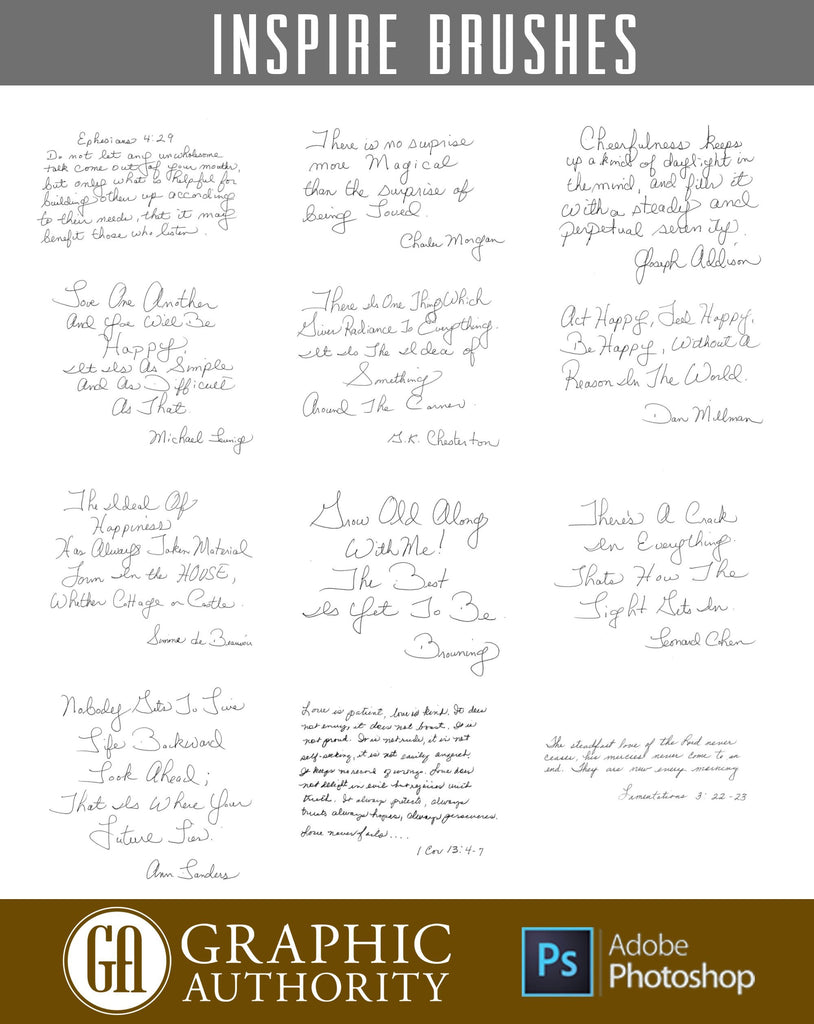 INSPIRE BRUSHES
Ephesians 4:29
Do not let any unwholesome
talk come out of your mouths,
but only what is helpful for
building other up according
to their needs, that it may
benefit those who listen.
There is no surprise
more Magical
than the surprise of
being Loved.
Charles Morgan
Cheerfulness keeps
up a kind of daylight in
the mind, and fills it
with a steady and
perpetual serenity.
Joseph Addison
Love One Another
And You Will Be
Happy.
It Is As Simple
And As Difficult
As That.
Michael Leunig
There Is One Thing Which
Gives Radiance To Everything.
It Is The Idea of
Something
Around The Corner.
G.K. Chesterton
Act Happy, Feel Happy,
Be Happy, Without A
Reason In The World.
Dan Millman
The Ideal Of
Happiness
Has Always Taken Material
Form In the HOUSE,
Whether Cottage or Castle.
Simone de Beauvoir
Grow Old Along
With Me!
The Best
Is Yet To Be.
Browning
There's A Crack
In Everything.
Thats How The
Light Gets In.
Leonard Cohen
Nobody Gets To Live
Life Backward
Look Ahead;
That Is Where Your
Future Lies.
Ann Landers
Love is patient, love is kind. It does
not envy, it does not boast. It is
not proud. It is not rude, it is not
self-seeking, it is not easily angered.
It keeps no record of wrongs. Love does
not delight in evil but rejoices with
truth. It always protects, always
trusts always hopes, always perseveres.
Love never fails....
1 Cor 13:4-7
The steadfast love of the Lord never
ceases, his mercies never come to an
end. They are new every morning
Limentations 3:22-23
GA GRAPHIC
AUTHORITY
Ps Adobe
Photoshop